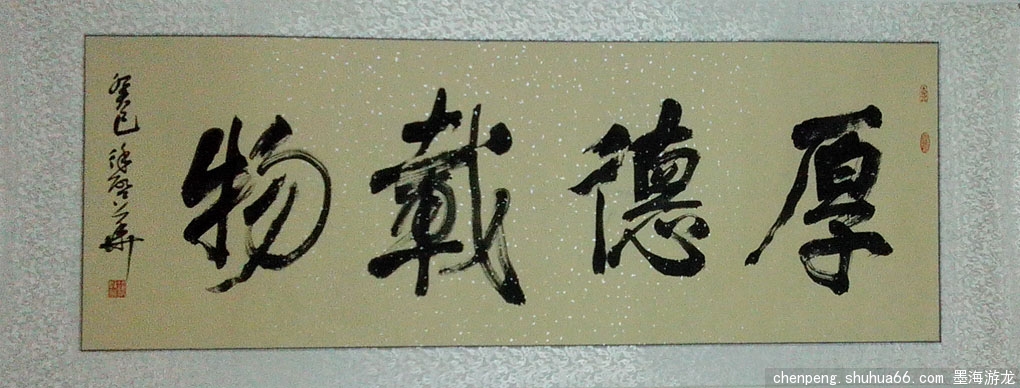 厚德載物
癸巳
chenpeng.shuhua66.com 墨海游龙